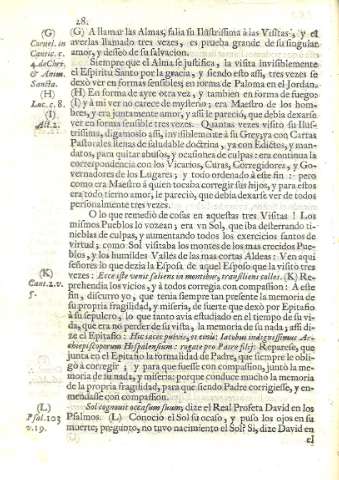 28.
(G)
Cornel. in
Cantic. c.
4. de Chri.
& Anim.
Sancta.
(H)
Luc. c. 8.
(I)
Act. 2.
(G) A llamar las Almas, salia su Ilustrissima à las Visitas; y el
averlas llamado tres vezes, es prueba grande de su singular
amor, y deseo de su salvacion.
Siempre que el Alma se justifica, la visita invisiblemente
el Espiritu Santo por la gracia, y siendo esto assi, tres vezes se
dexò ver en formas sensibles; en forma de Paloma en el Jordan.
(H) En forma de ayre otra vez, y tambien en forma de fuego:
(I) y à mi ver no carece de mysterio; era Maestro de los hom-
bres, y era juntamente amor, y assi le pareciò, que debia dexarse
ver en forma sensible tres vezes. Quantas vezes visitò su Ilus-
trissima, digamoslo assi, invisiblemente à su Grey, ya con Cartas
Pastorales llenas de saludable doctrina, ya con Edictos, y man-
datos, para quitar abusos, y ocasiones de culpas: era continua la
correspondencia con los Vicarios, Curas, Corregidores, y Go-
vernadores de los Lugares; y todo ordenado à este fin: pero
como era Maestro à quien tocaba corregir sus hijos, y para estos
era todo tierno amor, le pareciò, que debia dexarse ver de todos
personalmente tres vezes.
O lo que remediò de cosas en aquestas tres Visitas! Los
mismos Pueblos lo vozean; era vn Sol, que iba desterrando ti-
nieblas de culpas, y aumentando todos los exercicios santos de
virtud; como Sol visitaba los montes de los mas crecidos Pue-
blos, y los humildes Valles de las mas cortas Aldeas: Ven aqui
señores lo que dezia la Esposa de aquel Esposo que la visitò tres
vezes: Ecce iste venit saliens in montibus, transiliens calles. (K) Re-
prehendia los vicios, y à todos corregia con compassion: A este
fin, discurro yo, que tenia siempre tan presente la memoria de
su propria fragilidad, y miseria, de suerte que dexò por Epitafio
à su sepulcro, lo que tanto avia estudiado en el tiempo de su vi-
da, que era no perder de su vista, la memoria de su nada; assi di-
ze el Epitafio: Hic jacet pulvis, et cinis: Iacobus indignissimus Ar-
chiepiscoporum Hispalensium: rogate pro Patre filij: Reparese, que
junta en el Epitafio la formalidad de Padre, que siempre le obli-
gò à corregir; y para que fuesse con compassion, juntò la me-
moria de su nada, y miseria: porque conduce mucho la memoria
de la propria fragilidad, para que siendo Padre corrigiesse, y en-
mendasse con compassion.
(K)
Cant. 2. v.
5.
(L)
Psal. 103
v. 19.
Sol cognovit occasum suum, dize el Real Profeta David en los
Psalmos. (L) Conociò el Sol su ocaso, y puso los ojos en su
muerte; pregunto, no tuvo nacimiento el Sol? Si, dize David en
el